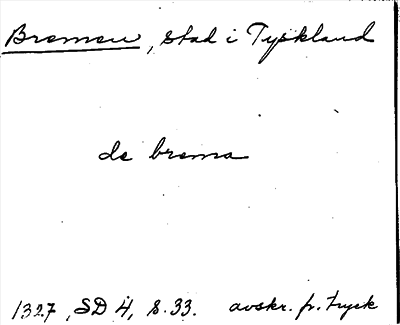 Bremen, stad i Tyskland
de brema
1327, SD 4, s. 33. avskr. fr. tryck